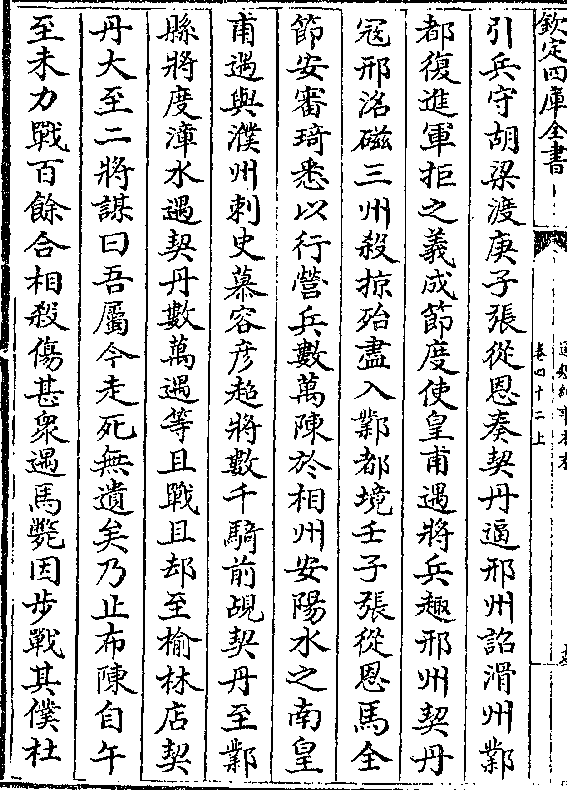 欽定四庫全書
通鑑紀事本末
卷四十二上
引兵守胡梁渡庚子張從恩奏契丹逼邢州詔滑州鄴
都復進軍拒之義成節度使皇甫遇將兵趣邢州契丹
寇邢洺磁三州殺掠殆盡入鄴都境壬子張從恩馬全
節安審琦悉以行營兵數萬陳於相州安陽水之南皇
甫遇與濮州刺史慕容彦超將數千騎前覘契丹至鄴
縣將度漳水遇契丹數萬遇等且戰且却至榆林店契
丹大至二將謀曰吾屬今走死無遺矣乃止布陳自午
至未力戰百餘合相殺傷甚衆遇馬斃因步戰其僕杜